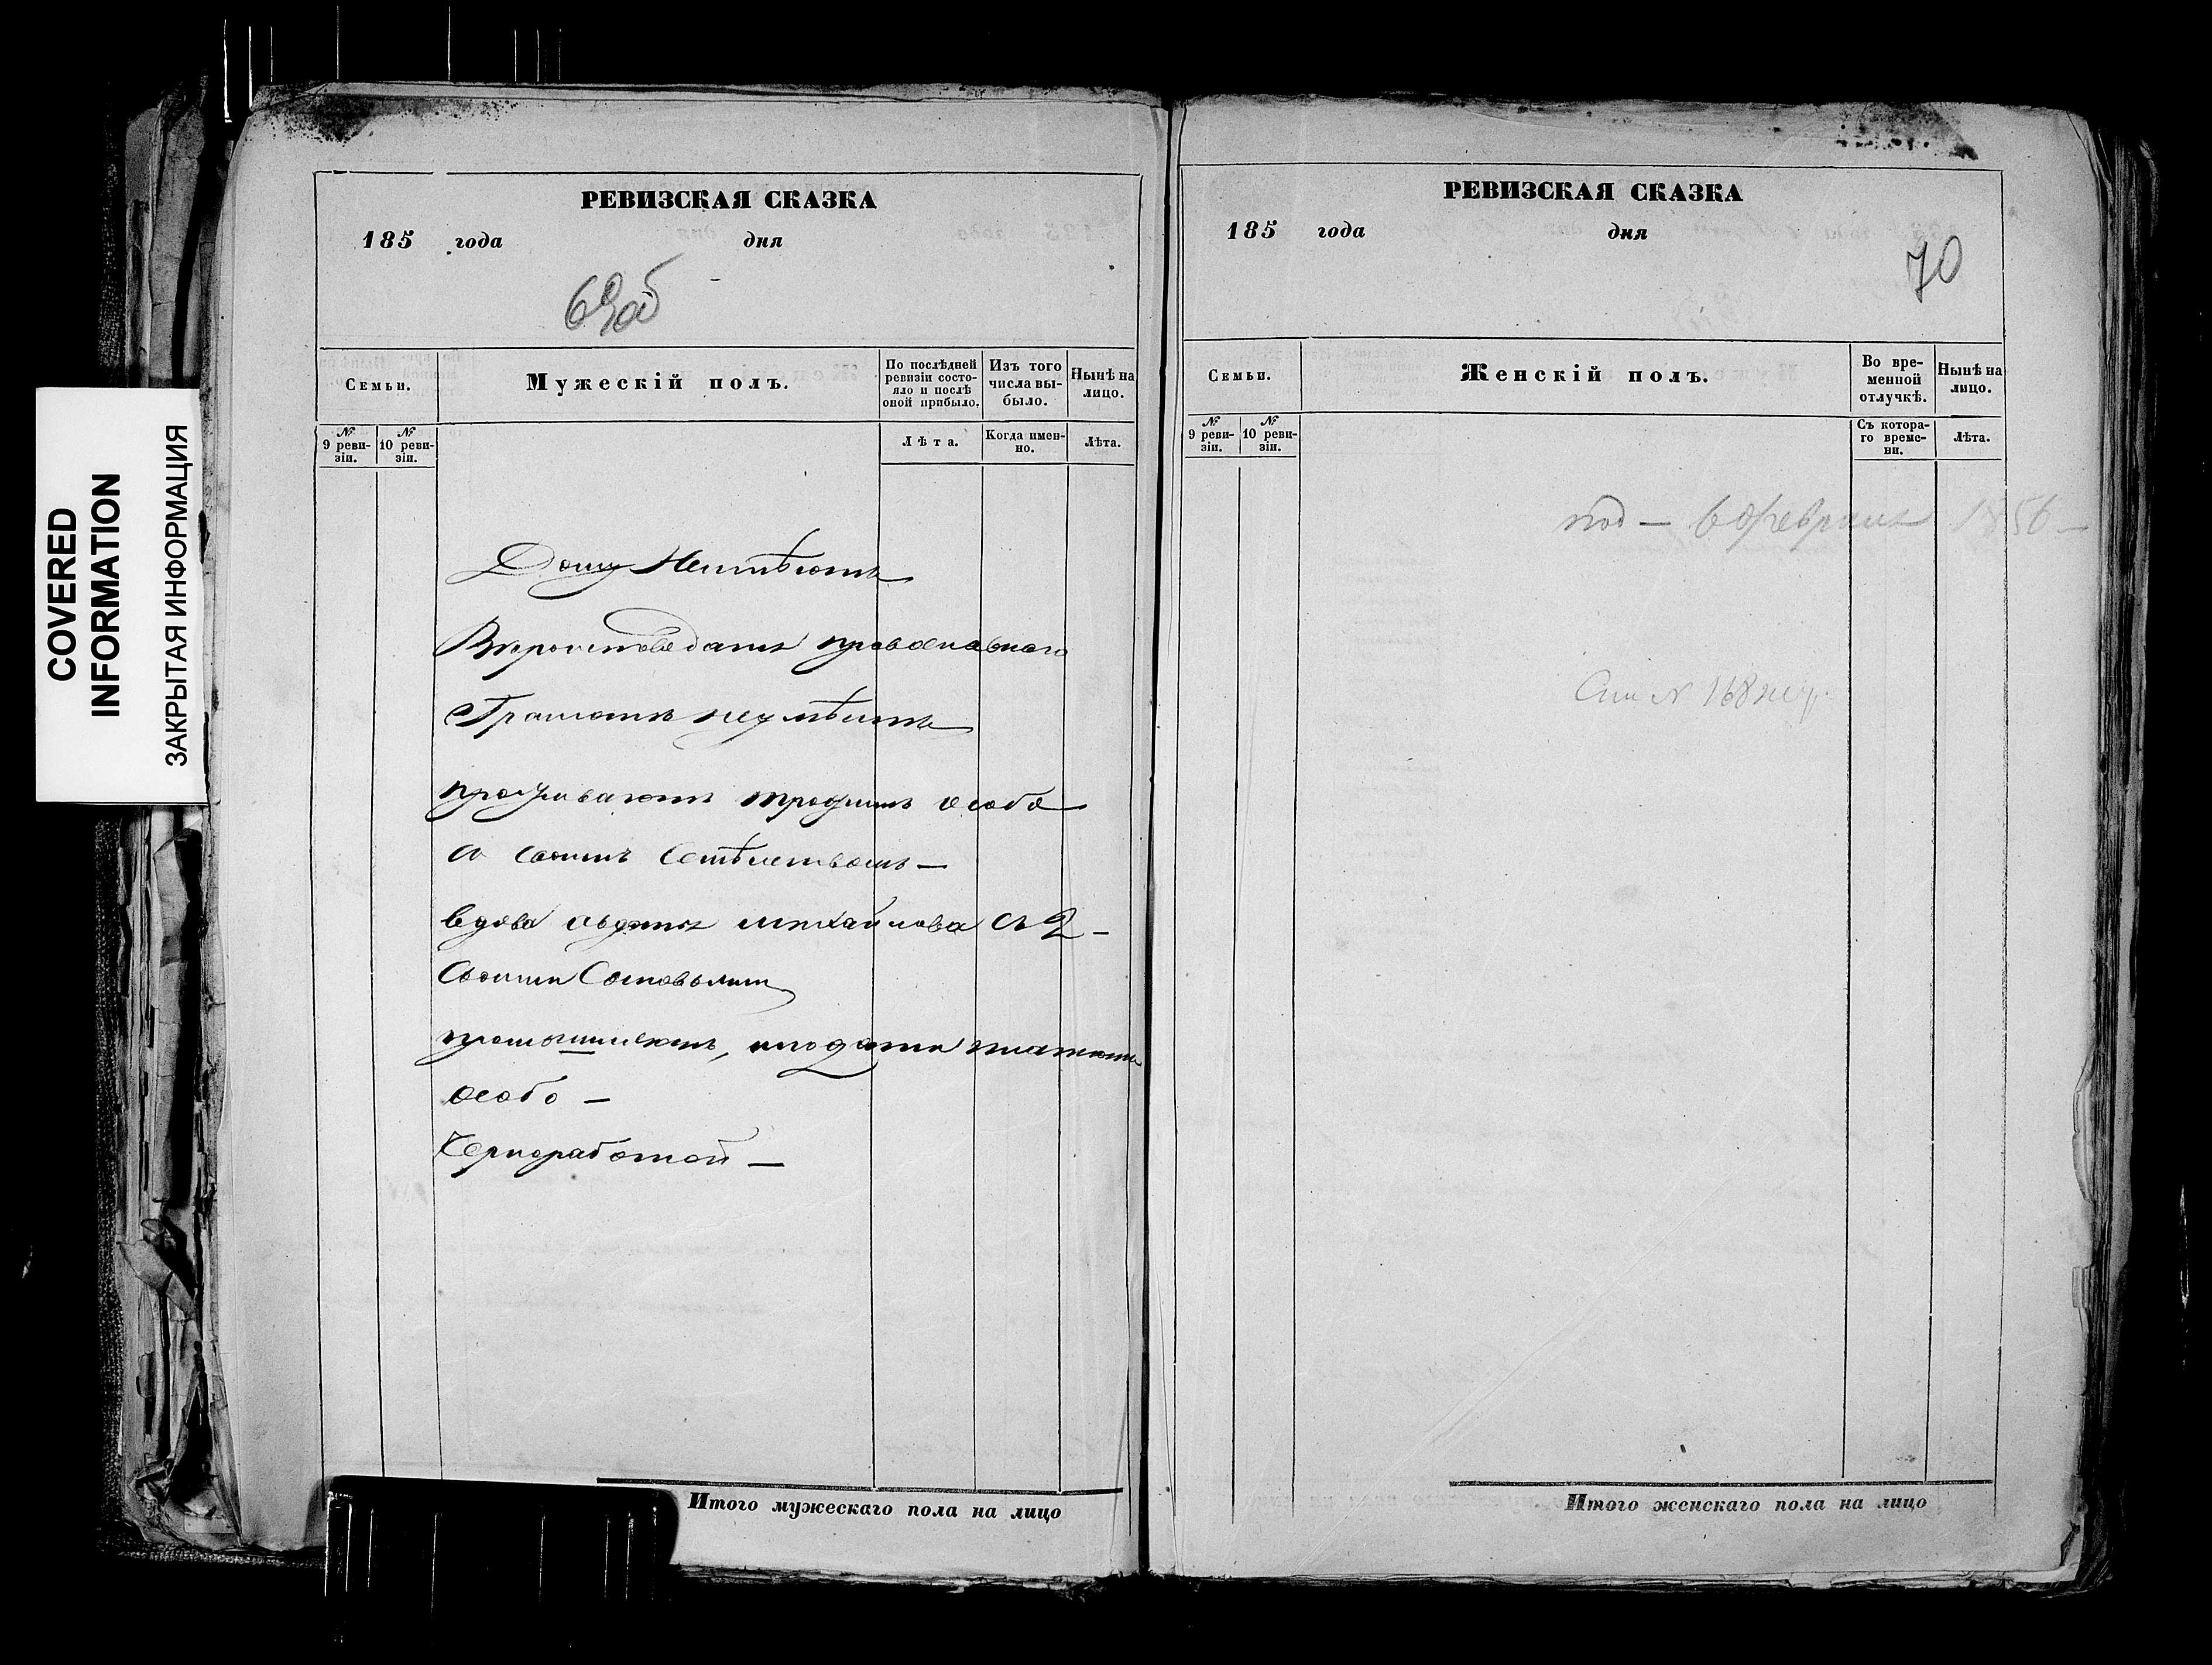 COVERED
INFORMATION
ЗАКРЫТАЯ ИНФОРМАЦИЯ
РЕВИЗСКАЯ СКАЗКА
185 года дня
69об
Семьи.
Мужескій полъ.
По послѣдней ревизіи состояло и послѣ оной прибыло.
Изъ того числа выбыло.
Нынѣ на лицо.
№ 9 ревизіи.
№ 10 ревизіи.
Лѣта.
Когда именно.
Лѣта.
Дому Неимѣютъ
Вѣроисповеданія православнаго
Грамотѣ неумѣютъ
проживаютъ трофимъ особо
съ своимъ Семѣйствомъ —
вдова авдотья михайлова съ 2 —
своими Сыновьями
промышляютъ, иподати платютъ
особо —
Чернработой —
Итого мужескаго пола на лицо
РЕВИЗСКАЯ СКАЗКА
185 года дня
70
Семьи.
Женскій полъ.
Во временной отлучкѣ.
Нынѣ на лицо.
№ 9 ревизіи.
№ 10 ревизіи.
Съ котораго времени.
Лѣта.
под — 6 февраля 1856 —
См № 168
Итого женскаго пола на лицо